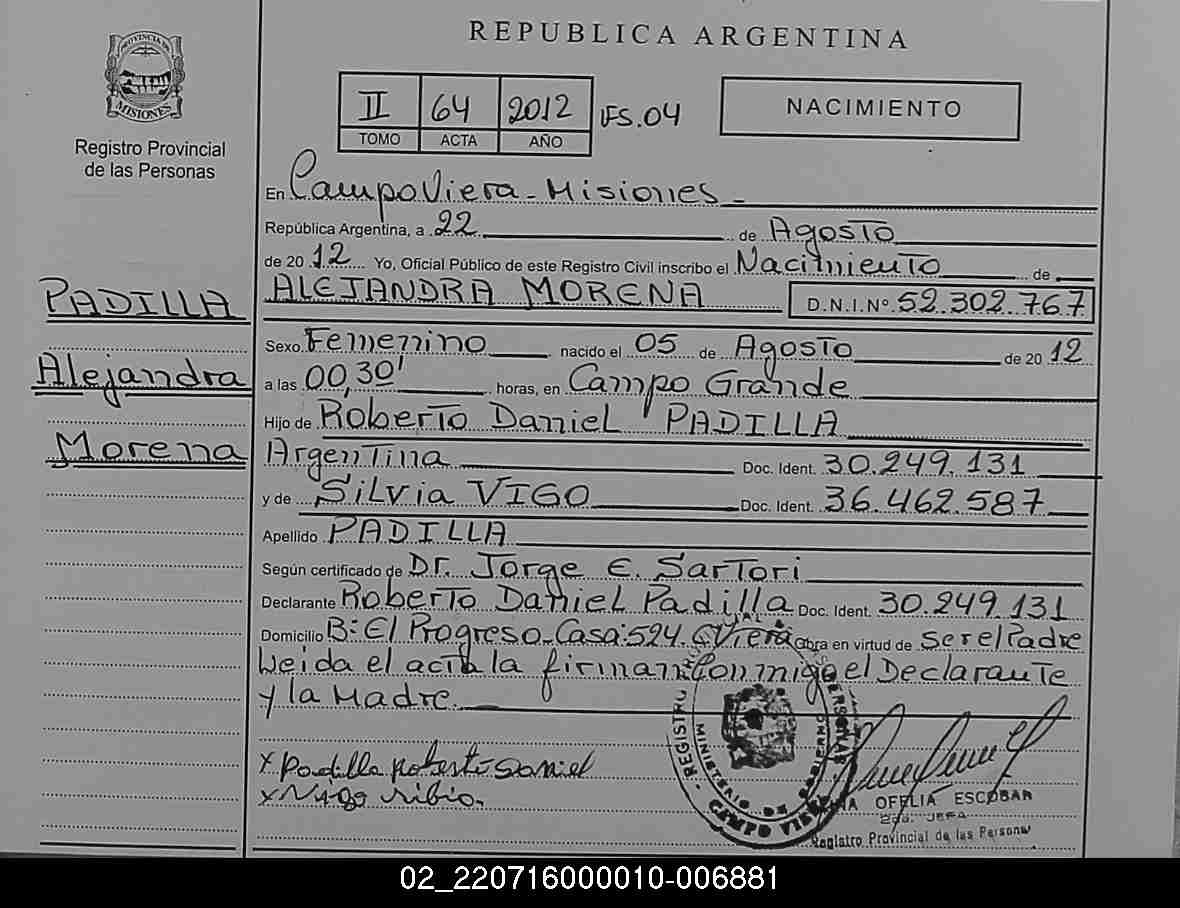 REPUBLICA ARGENTINA
PROVINCIA DE
MISIONES
Registro Provincial
de las Personas
II 64 2012 FS.04
TOMO ACTA AÑO
NACIMIENTO
En Campo Viera - Misiones -
República Argentina, a 22 de Agosto
de 20 12 Yo, Oficial Público de este Registro Civil inscribo el Nacimiento de
ALEJANDRA MORENA D.N.I.Nº 52.302.767
PADILLA
Alejandra
Morena
Sexo Femenino nacido el 05 de Agosto de 20 12
a las 00,30' horas, en Campo Grande
Hijo de Roberto Daniel PADILLA
Argentina Doc. Ident. 30.249.131
y de Silvia VIGO Doc. Ident. 36.462.587
Apellido PADILLA
Según certificado de Dr. Jorge E. Sartori
Declarante Roberto Daniel Padilla Doc. Ident. 30.249.131
Domicilio B: El Progreso-Casa:524. C.Viera Obra en virtud de ser el Padre
Leida el acta la firman Conmigo el Declarante
y la Madre.
x Padilla Roberto Daniel
REGISTRO PERSONAS
MINISTERIO DE GOBIERNO
CAMPO VIERA
OFELIA ESCOBAR
2da. JEFA
Registro Provincial de las Personas
02_220716000010-006881